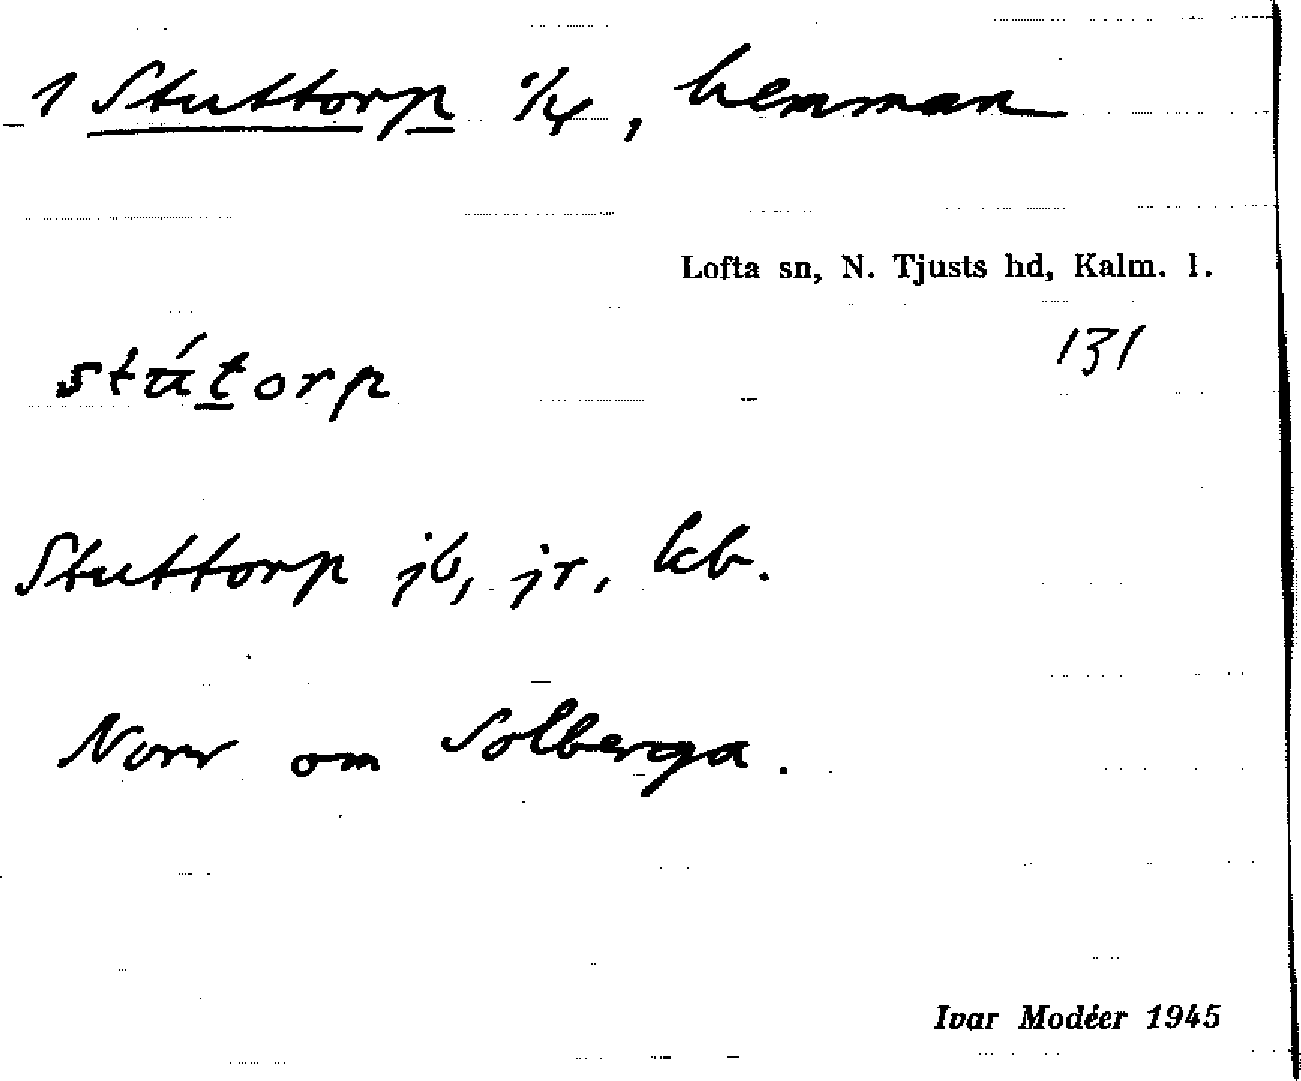 1 Stuttorp 1/4, hemman
Lofta sn, N. Tjusts hd, Kalm. l.
131
stútorp
Stuttorp jb, jr, kb.
Norr om Solberga.
Ivar Modéer 1945